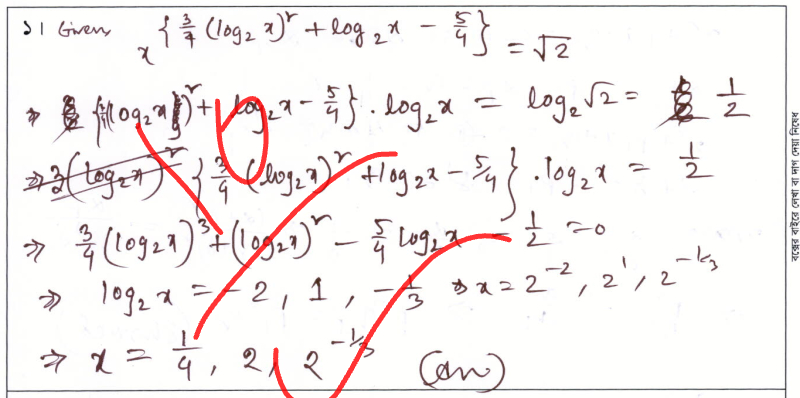 ১। Given, x^{3/4 (log₂x)² + log₂x - 5/4} = √2
⇒ {(log₂x)² + log₂x - 5/4} . log₂x = log₂√2 = 1/2
⇒ {3/4 (log₂x)² + log₂x - 5/4} . log₂x = 1/2
⇒ 3/4 (log₂x)³ + (log₂x)² - 5/4 log₂x - 1/2 = 0
⇒ log₂x = -2, 1, -1/3 ⇒ x = 2⁻², 2¹, 2^{-1/3}
⇒ x = 1/4, 2, 2^{-1/3} (an)
বক্সের বাইরে লেখা বা দাগ দেয়া নিষেধ